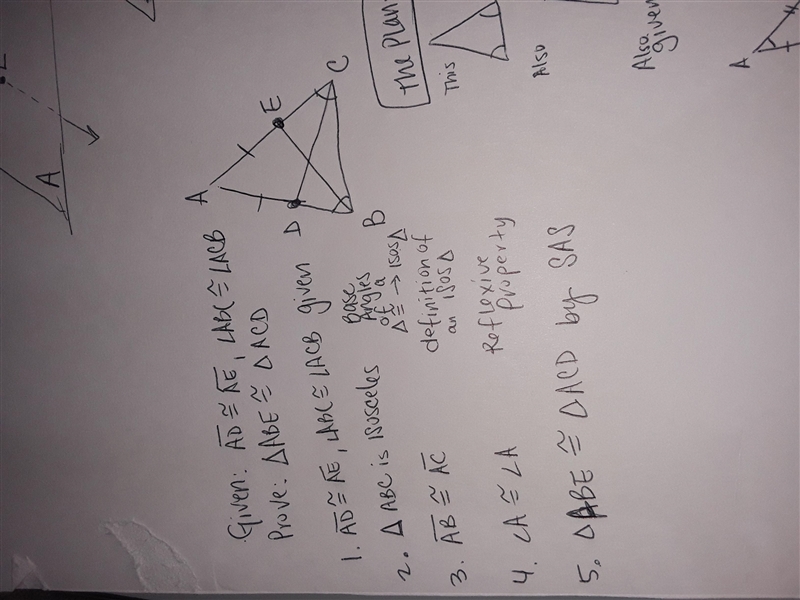 Given: AD ≅ AE, ∠ABC ≅ ∠ACB
Prove: △ABE ≅ △ACD
1. AD ≅ AE, ∠ABC ≅ ∠ACB given
2. △ ABC is isosceles
Base
Angles
of a
△ ≅ → isos △
3. AB ≅ AC
definition of
an isos △
4. ∠A ≅ ∠A
Reflexive
property
5. △ABE ≅ △ACD by SAS
A
E
C
D
B
A
the Plan
This
Also
Also
given
A